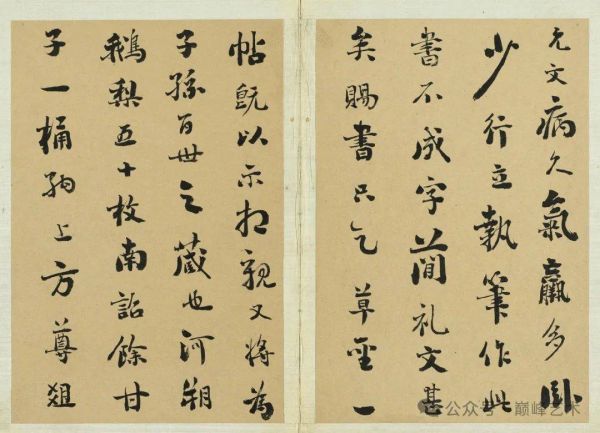 允文病久氣羸多臥
少行立執筆作此
書不成字簡礼文甚
矣賜書只乞草聖一
帖既以示所親又將為
子孫百世之藏也河朔
鵝梨五十枚南詔餘甘
子一桶納上方尊俎
公众号 · 巅峰艺术